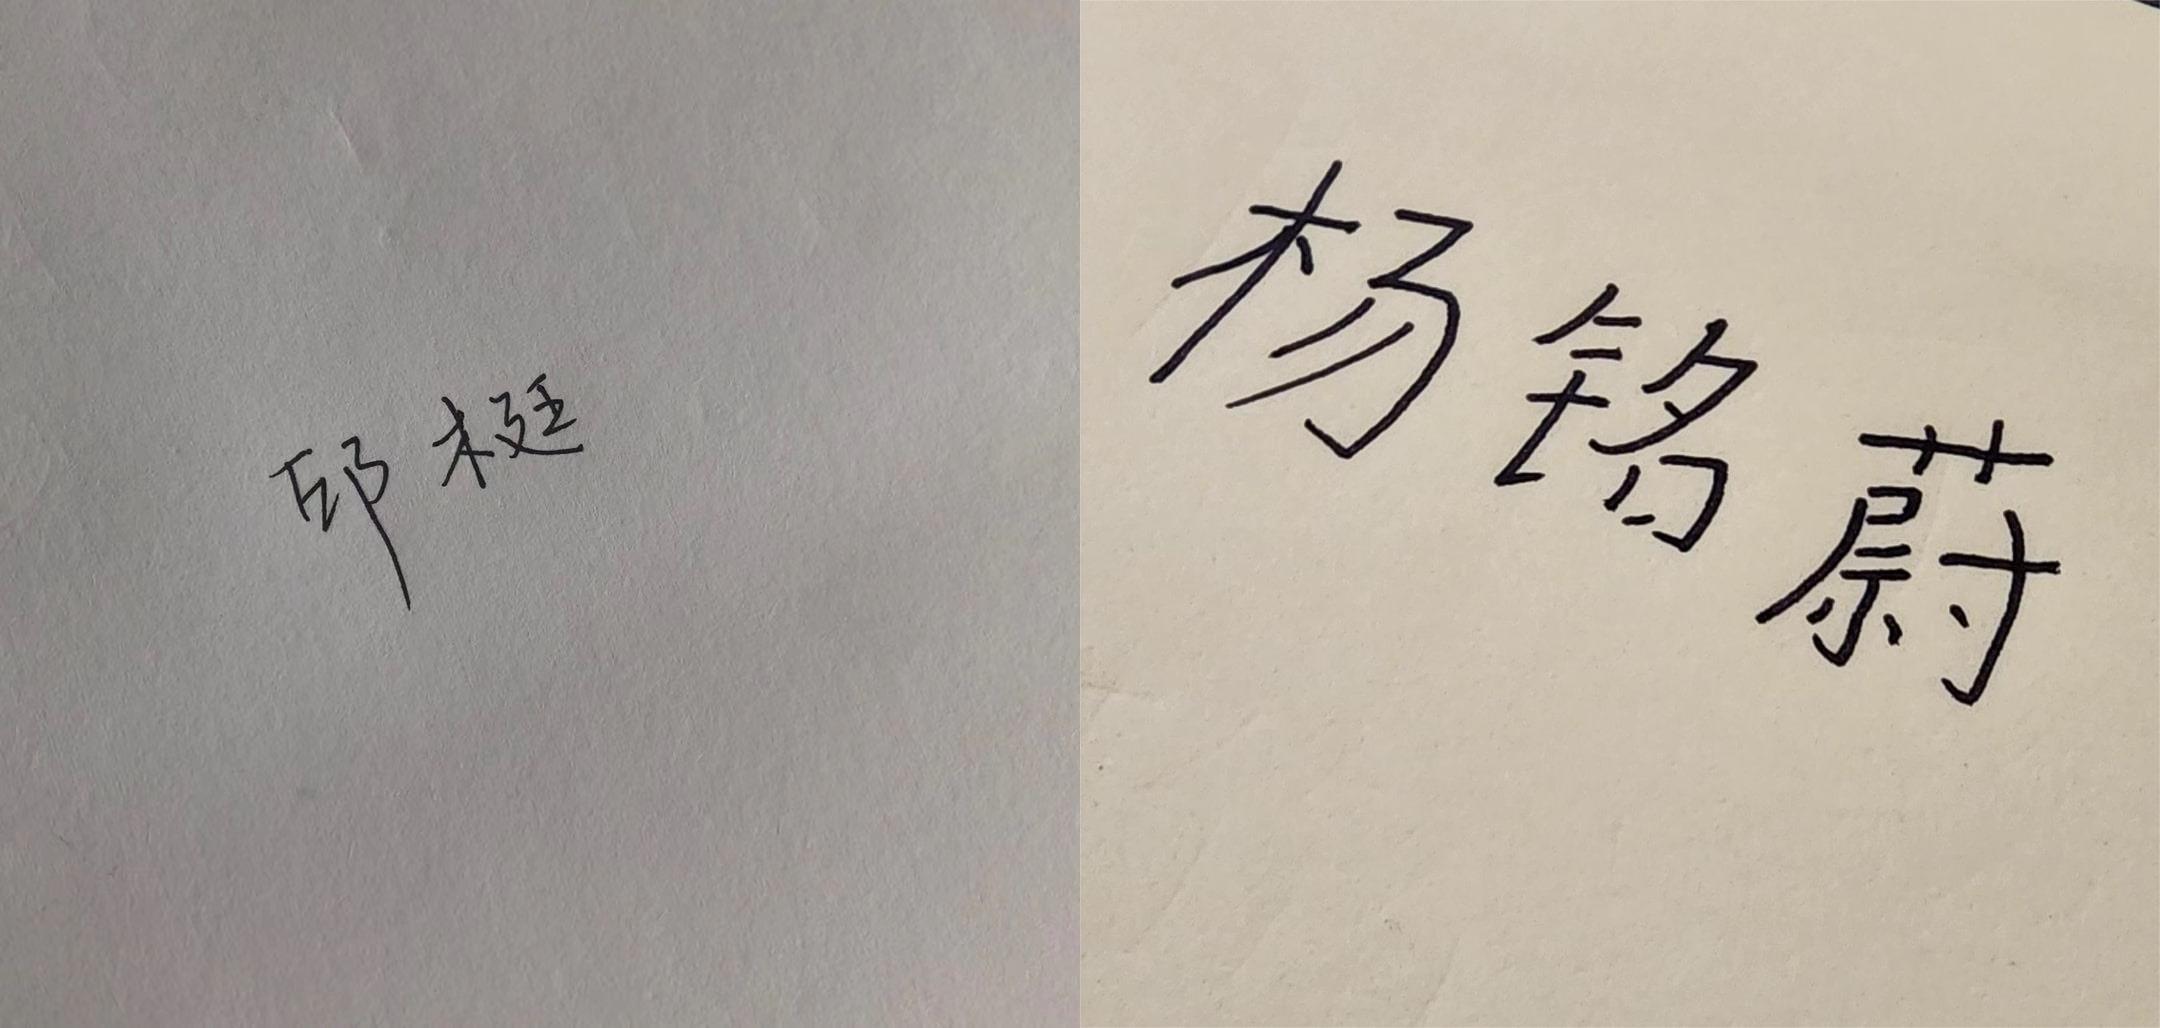 邱梃
杨铭蔚